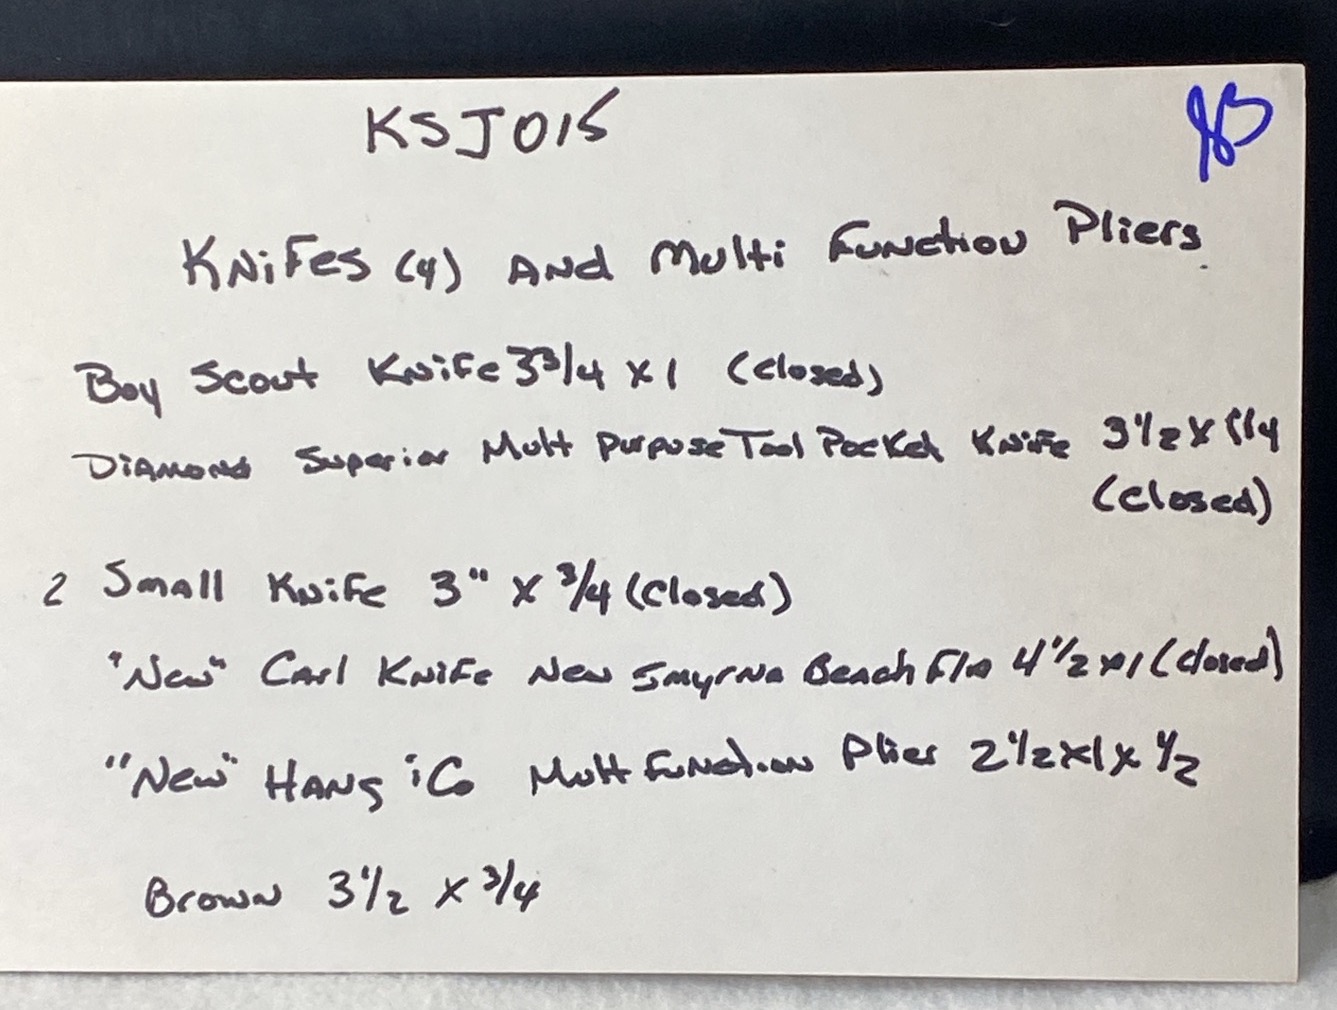 KSJ015
KNiFes (4) AND Multi Function Pliers
Boy Scout Knife 3 3/4 x 1 (closed)
Diamond Superior Mult purpose Tool Pocket Knife 3 1/2 x 1 1/4
(closed)
2 Small Knife 3" x 3/4 (closed)
"New" Carl Knife New Smyrna Beach Fla 4 1/2 x 1 (closed)
"New" HANG iCo Mult Function Plier 2 1/2 x 1 x 1/2
Brown 3 1/2 x 3/4